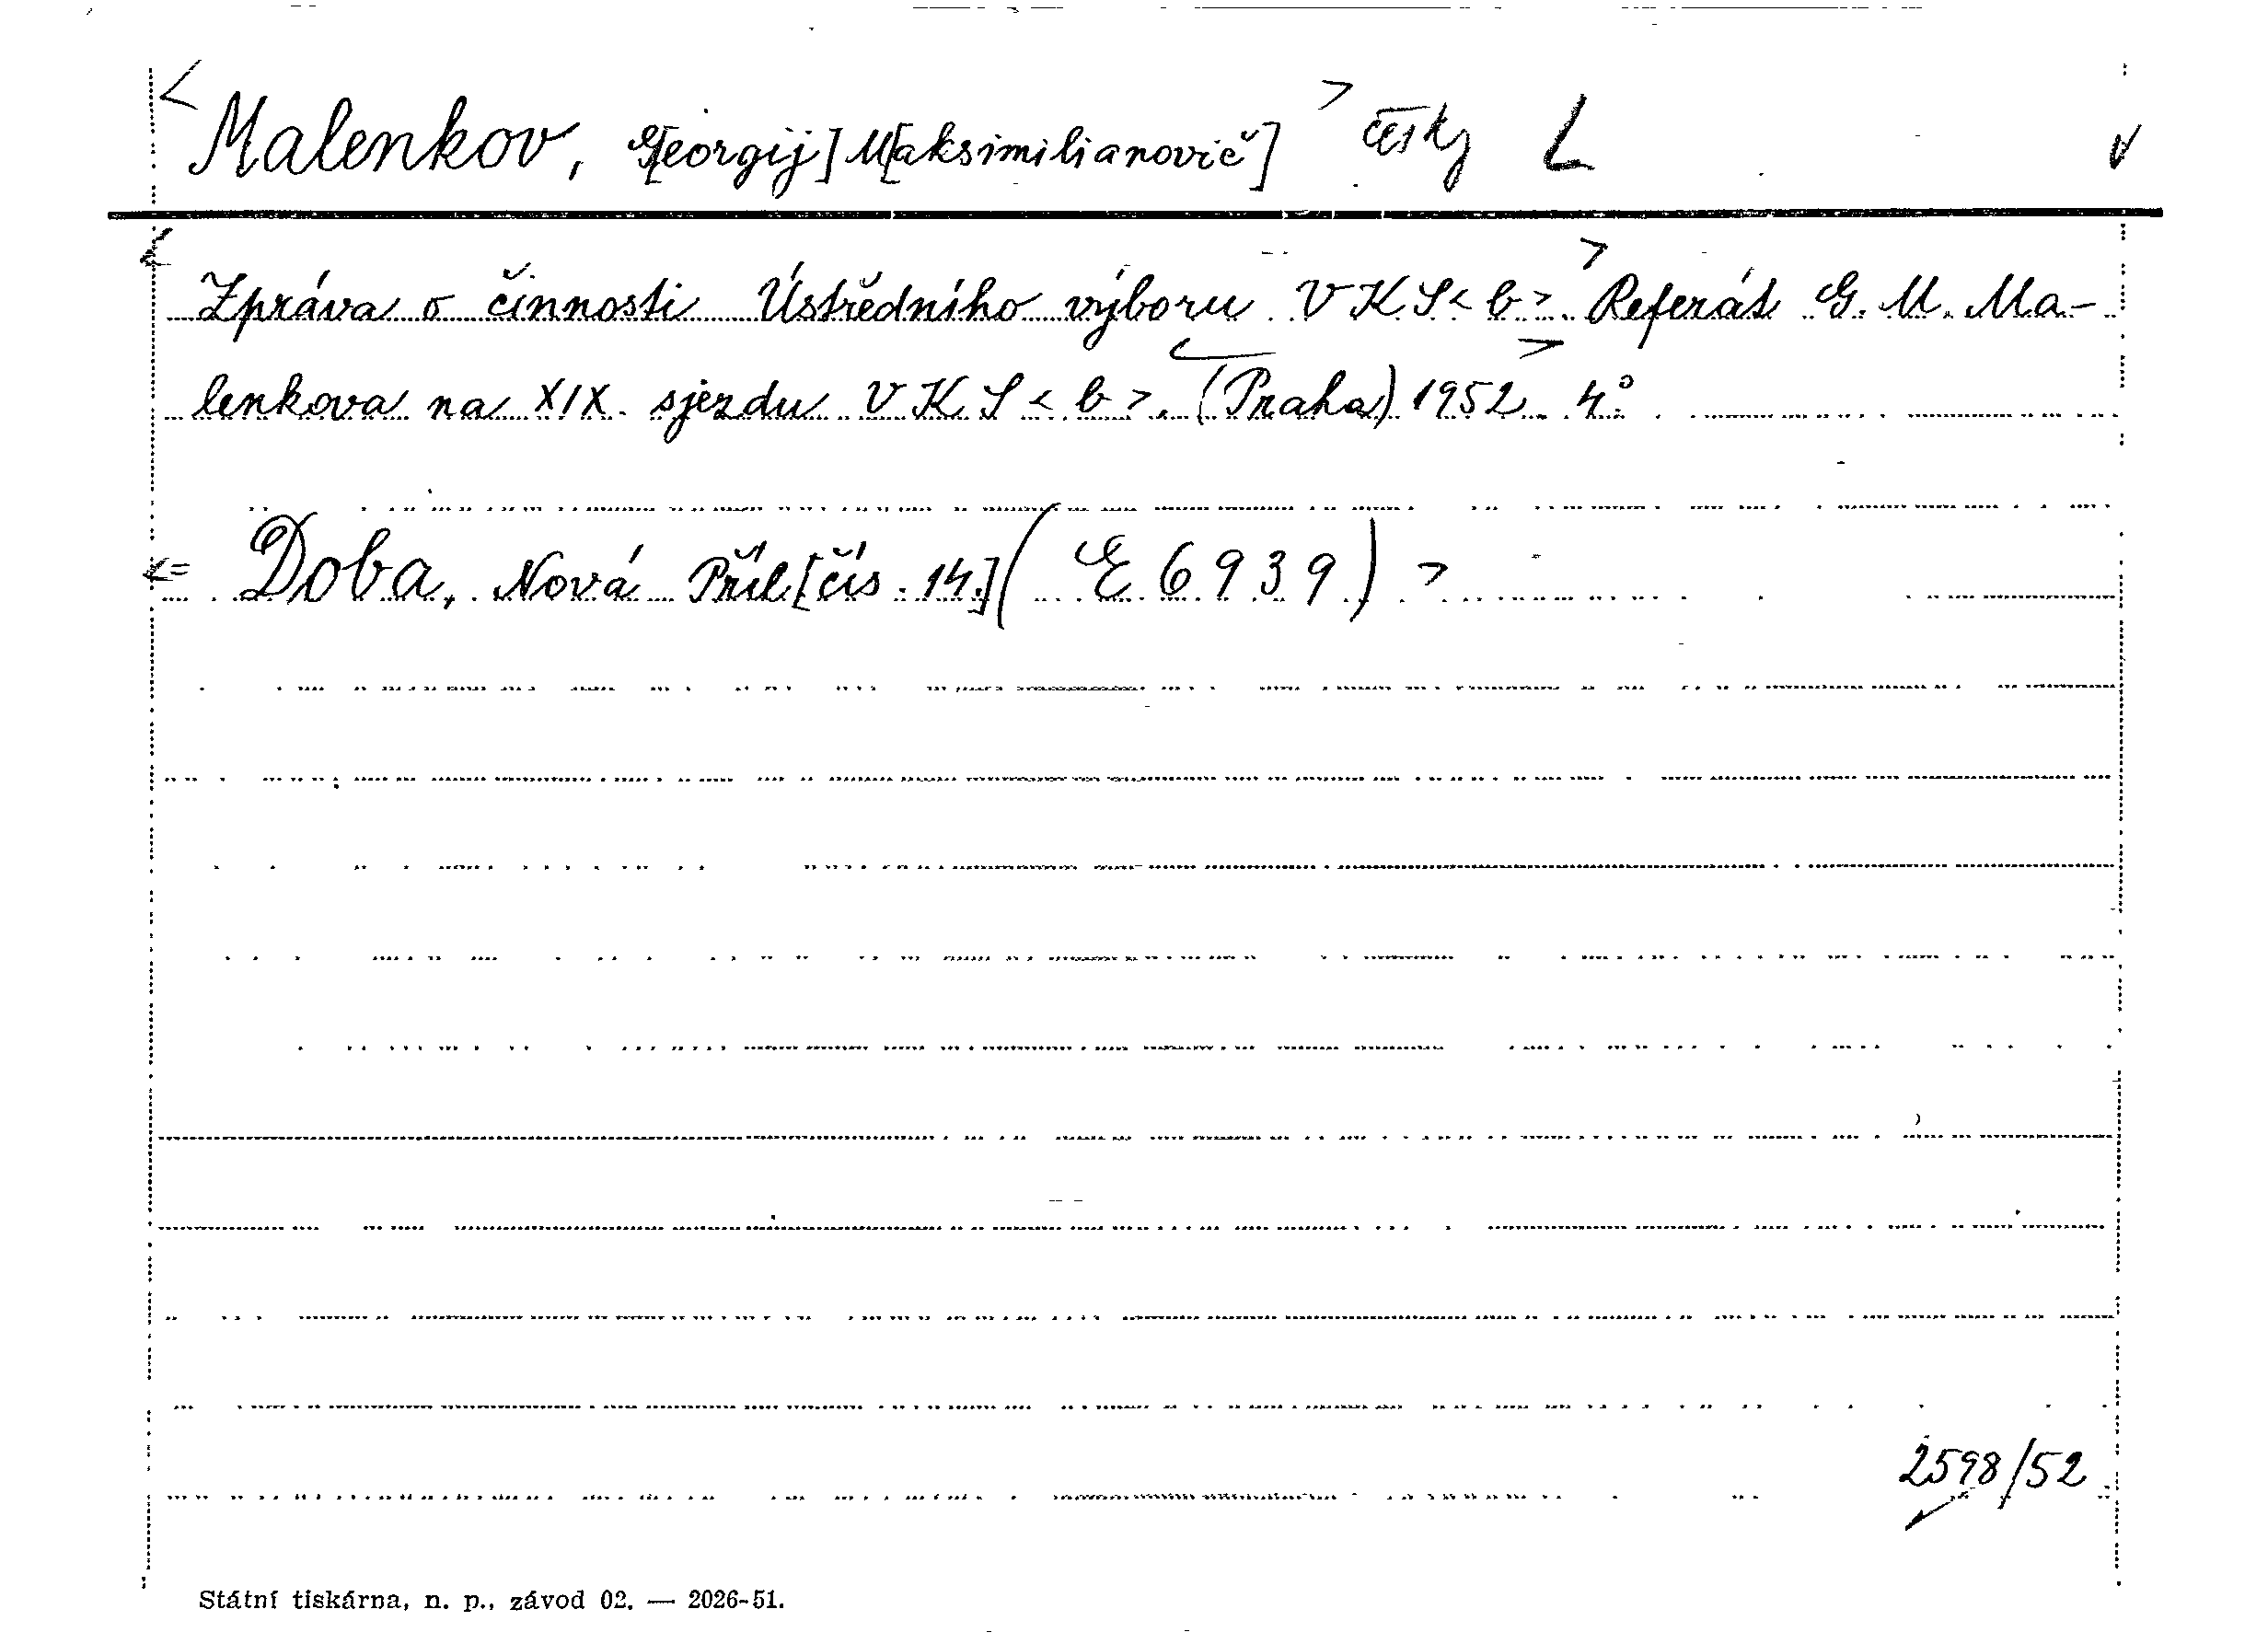 < Malenkov, G[eorgij] M[aksimilianovič] > česky L
< Zpráva o činnosti Ústředního výboru VKS<b>. > Referát G. M. Ma-
lenkova na XIX. sjezdu VKS<b>. < (Praha) > 1952. 4°.
<= Doba, Nová Příl[čís. 14.] (E 6939) >
2598/52
Státní tiskárna, n. p., závod 02. — 2026-51.